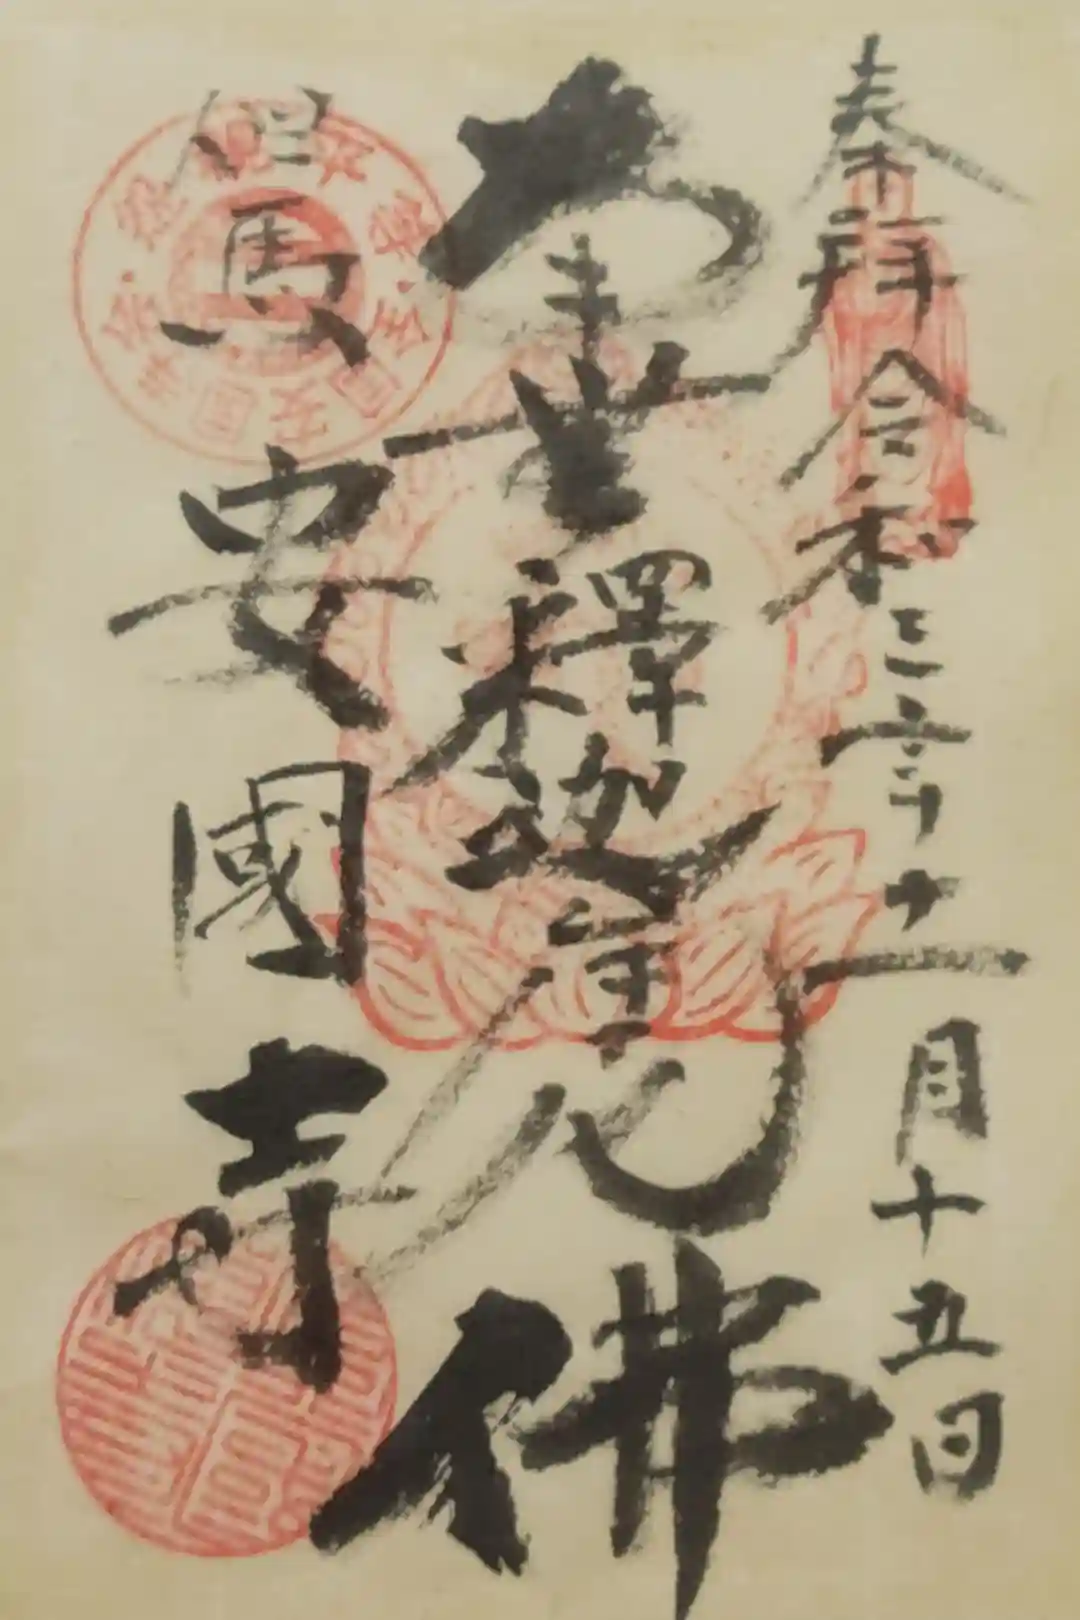 奉拜 令和三年十一月十五日
南無釋迦牟尼佛
但馬 安國寺